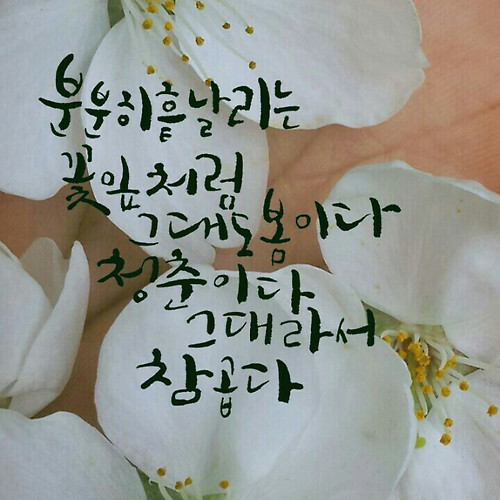 분분히흩날리는
꽃잎처럼
그대도봄이다
청춘이다
그대라서
참곱다